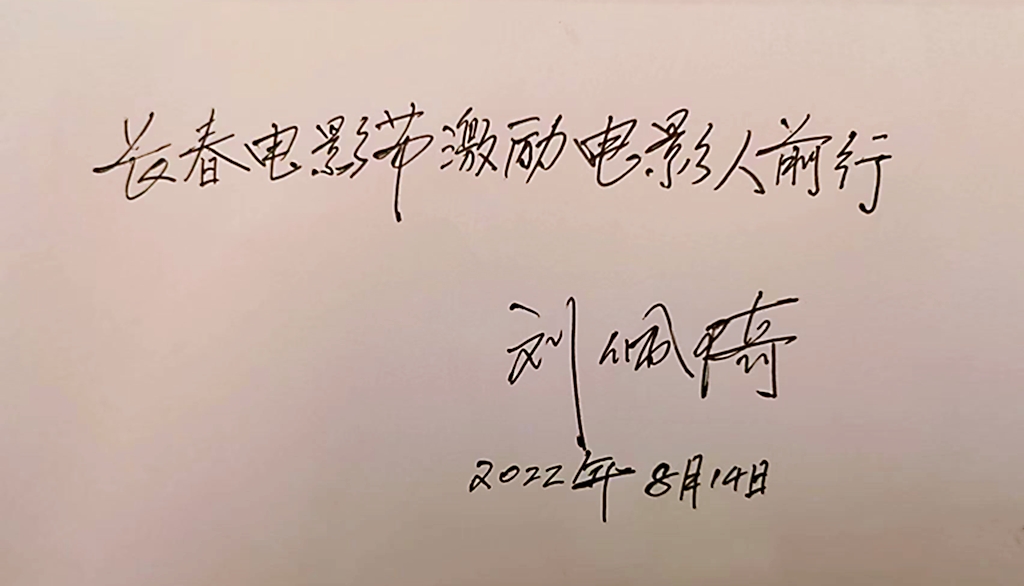 长春电影节激励电影人前行
刘佩琦
2022年8月14日